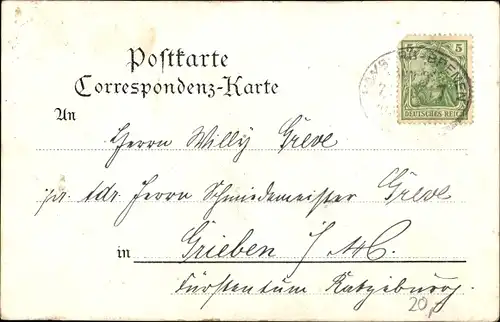 Postkarte
Correspondenz-Karte
5 5
BREMEN
DEUTSCHES REICH
An
Herrn Willy Greve
pr. adr. Herrn Schmiedemeister Greve
in Grieben i/M
Fürstentum Ratzeburg.
20